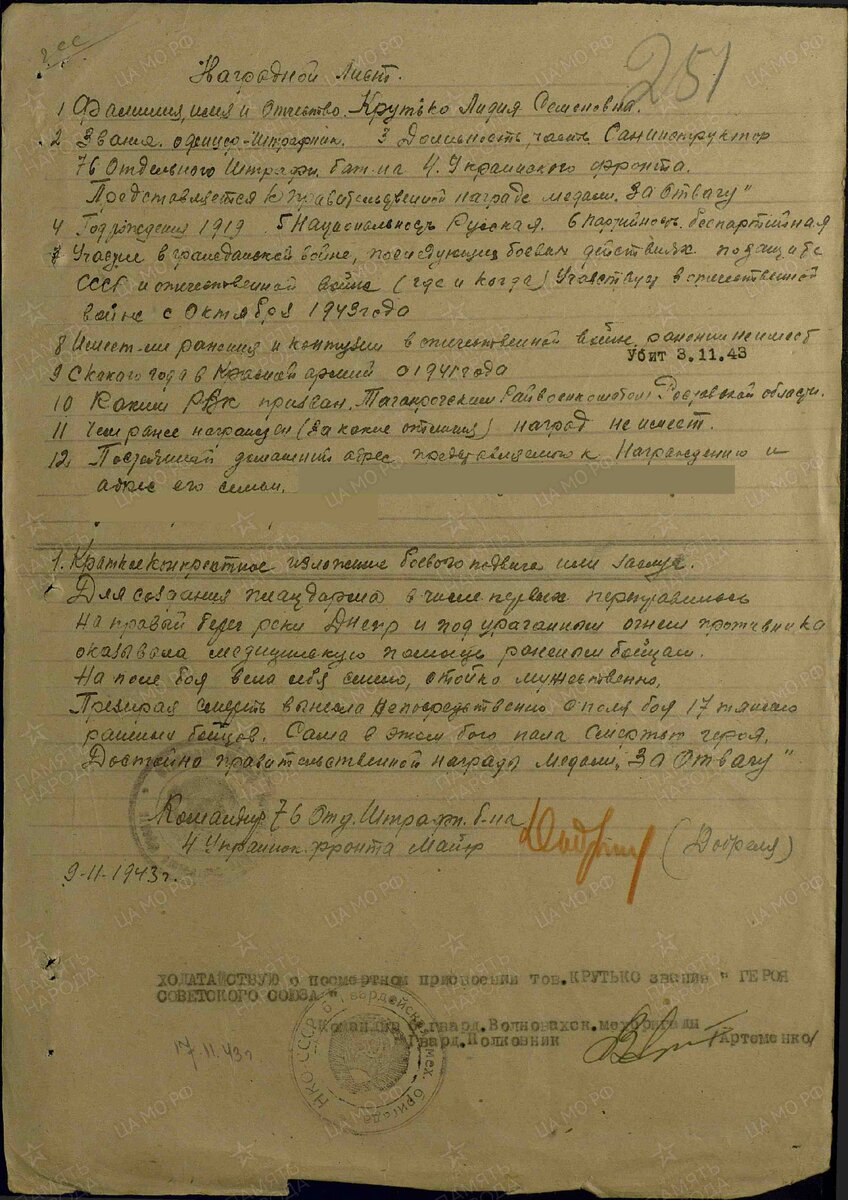 251
Наградной лист.
1 Фамилия, имя и отчество. Крутько Лидия Семеновна.
2 Звания. офицер-штрафник. 3 Должность, часть. Санинструктор
76 Отдельного Штрафн. бат-на 4. Украинского фронта.
Представляется к правительственной награде медаль "За Отвагу"
4 Год рождения 1919 . 5 Национальность Русская. 6 партийность. беспартийная
7 Участие в гражданской войне, последующих боевых действиях по защите
СССР и отечественной войне (где и когда) Участвует в отечественной
войне с Октября 1943 года
8 Имеет-ли ранения и контузии в отечественной войне. ранений не имеет
Убит 3.11.43
9 С какого года в Красной армии с 1941 года
10 Каким РВК призван. Таганрогским Райвоенкоматом Ростовской области.
11 Чем ранее награжден (за какие отличия) наград не имеет.
12. Постоянный домашний адрес представляемого к Награждению и
адрес его семьи.
1. Краткое конкретное изложение боевого подвига или заслуг.
Для создания плацдарма в числе первых переправилась
на правый берег реки Днепр и под ураганным огнем противника
оказывала медицинскую помощь раненым бойцам.
На поле боя вела себя смело, стойко мужественно,
Презирая смерть вынесла непосредственно с поля боя 17 тяжело
раненых бойцов. Сама в этом бою пала смертью героя.
Достойна правительственной награды медали "За Отвагу"
Командир 76 Отд. Штрафн. б-на
4 Украинск. фронта Майор (Добреля)
9-11-1943 г.
ХОДАТАЙСТВУЮ о посмертном присвоении тов. КРУТЬКО звания " ГЕРОЯ
СОВЕТСКОГО СОЮЗА"
Командир гвард. Волновахск. мехбригады
Гвард. Полковник /Артеменко/
17.11.43г
НКО СССР 6 гвардейская мех. бригада
ЦА МО РФ
ПАМЯТЬ НАРОДА